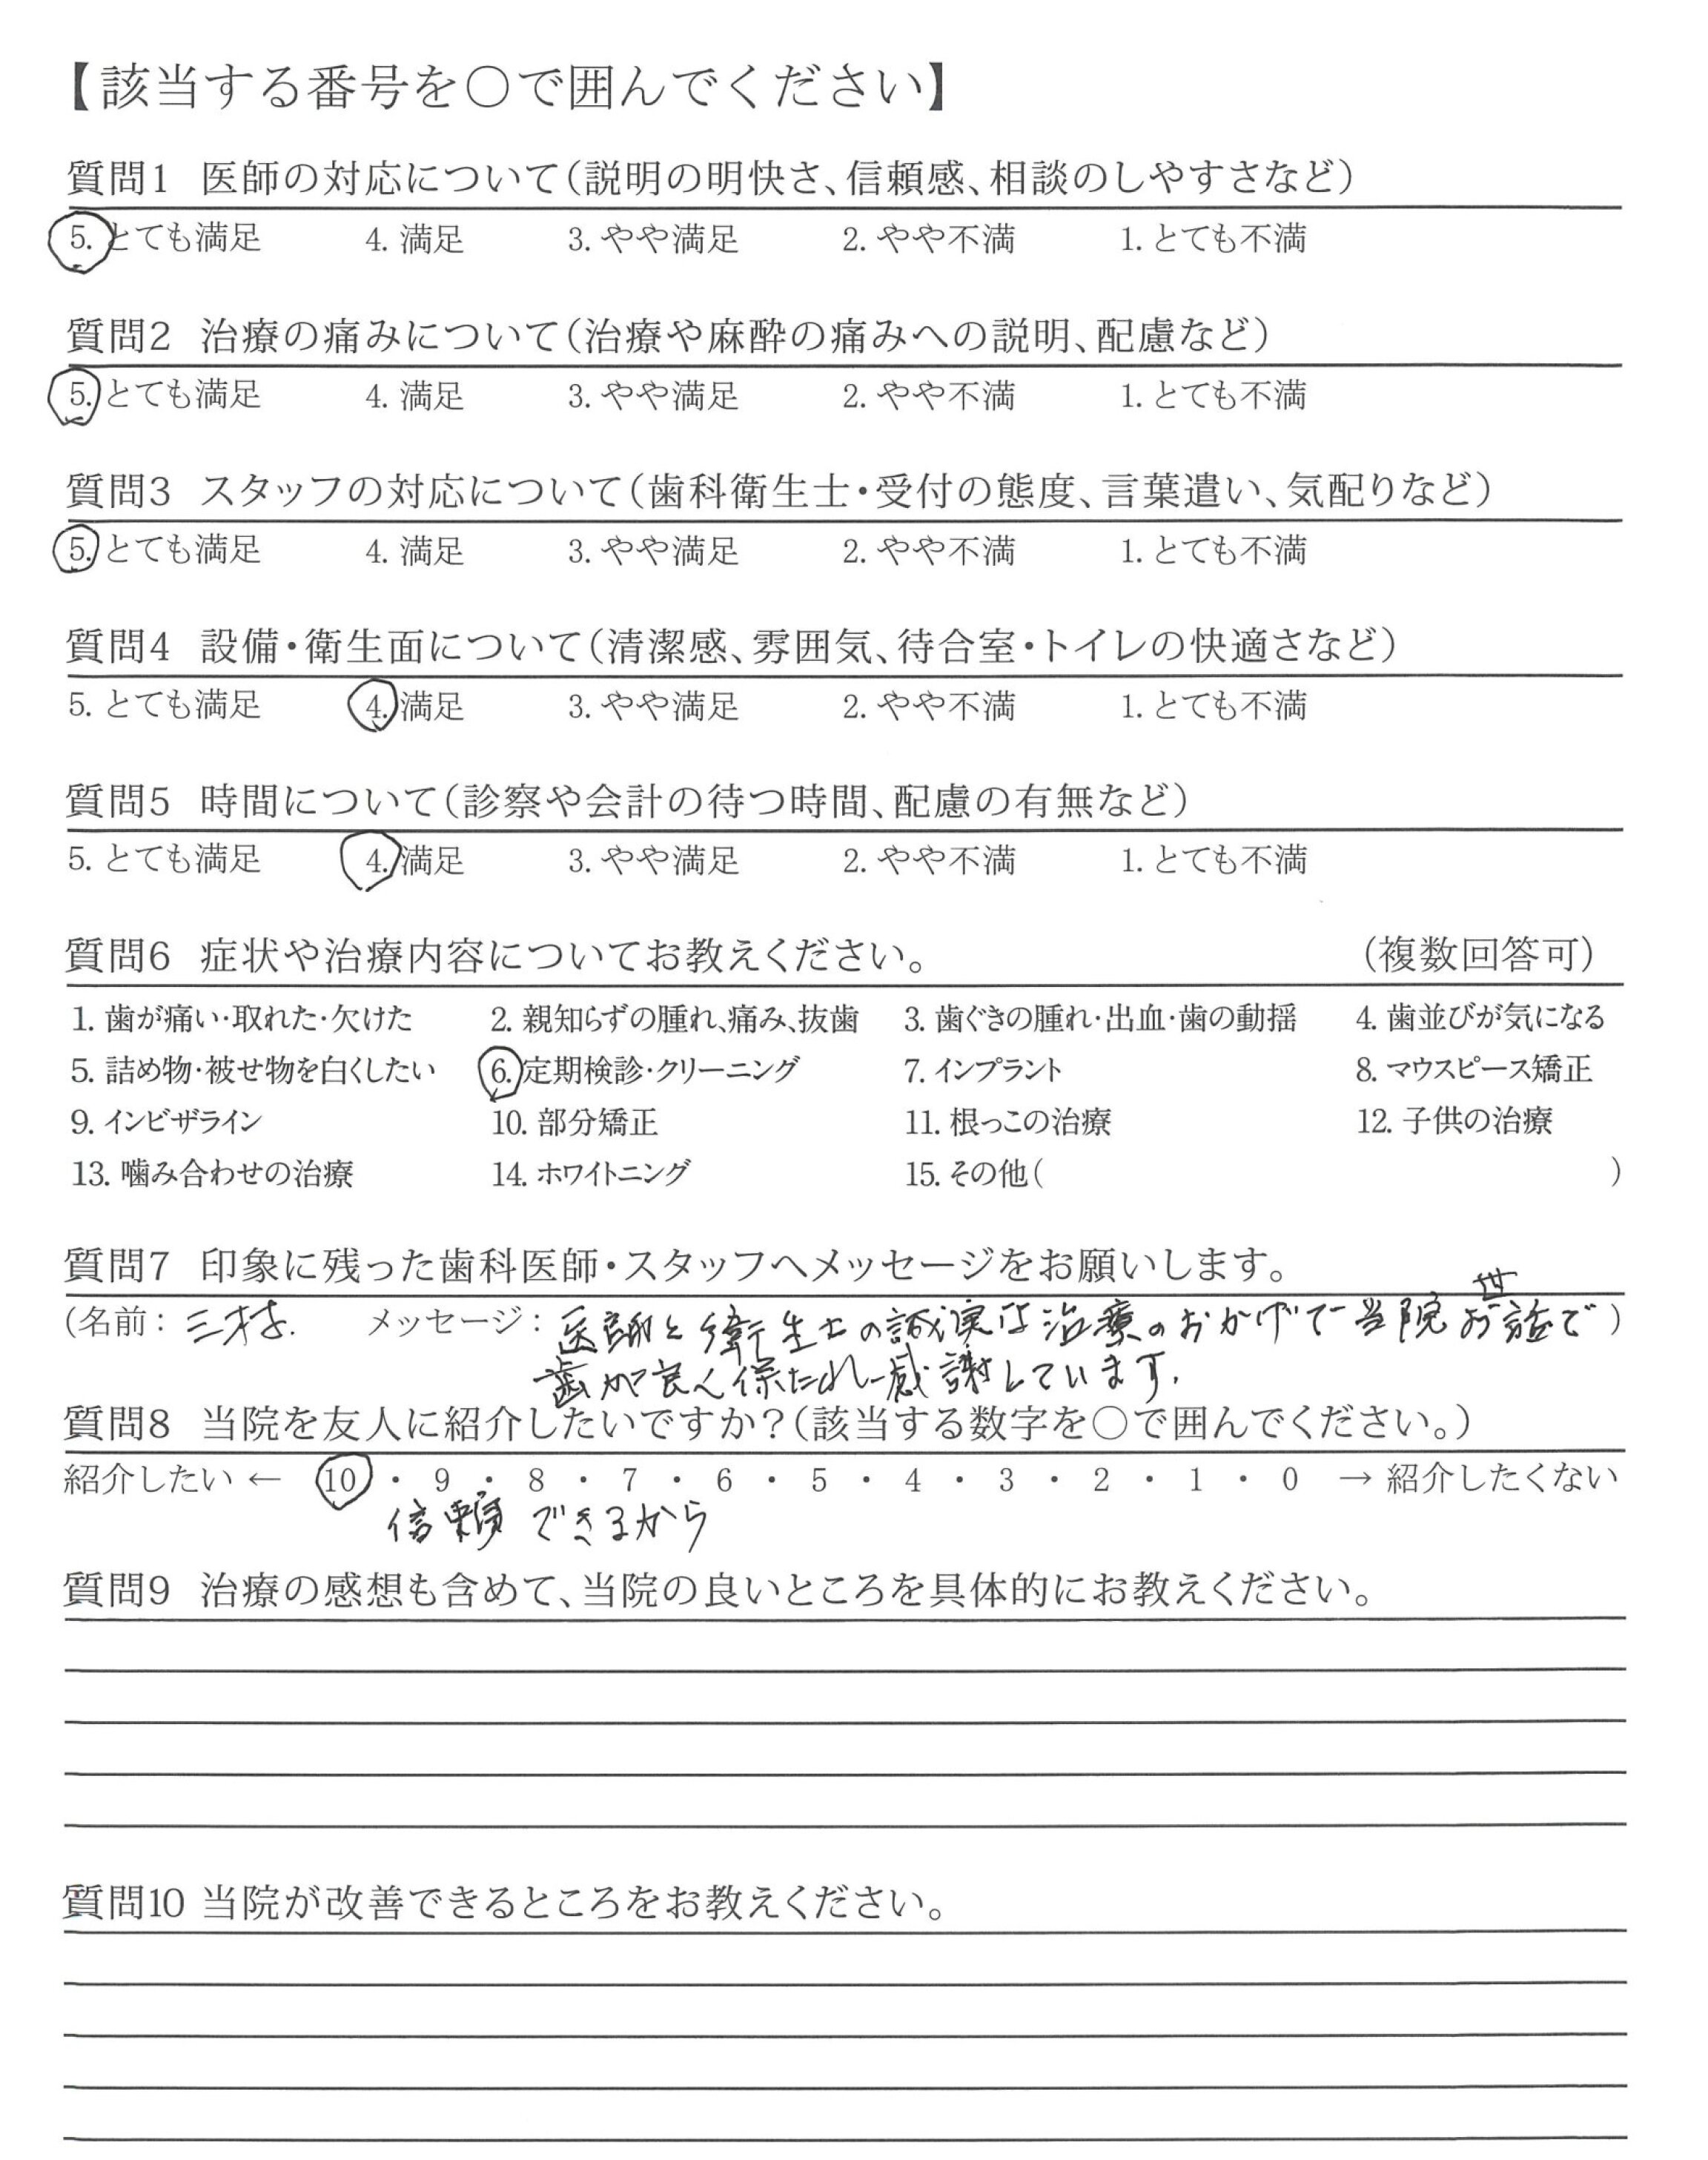 【該当する番号を〇で囲んでください】
質問1 医師の対応について（説明の明快さ、信頼感、相談のしやすさなど）
5. とても満足 4. 満足 3. やや満足 2. やや不満 1. とても不満
質問2 治療の痛みについて（治療や麻酔の痛みへの説明、配慮など）
5. とても満足 4. 満足 3. やや満足 2. やや不満 1. とても不満
質問3 スタッフの対応について（歯科衛生士・受付の態度、言葉遣い、気配りなど）
5. とても満足 4. 満足 3. やや満足 2. やや不満 1. とても不満
質問4 設備・衛生面について（清潔感、雰囲気、待合室・トイレの快適さなど）
5. とても満足 4. 満足 3. やや満足 2. やや不満 1. とても不満
質問5 時間について（診察や会計の待つ時間、配慮の有無など）
5. とても満足 4. 満足 3. やや満足 2. やや不満 1. とても不満
質問6 症状や治療内容についてお教えください。 （複数回答可）
1. 歯が痛い・取れた・欠けた 2. 親知らずの腫れ、痛み、抜歯 3. 歯ぐきの腫れ・出血・歯の動揺 4. 歯並びが気になる
5. 詰め物・被せ物を白くしたい 6. 定期検診・クリーニング 7. インプラント 8. マウスピース矯正
9. インビザライン 10. 部分矯正 11. 根っこの治療 12. 子供の治療
13. 噛み合わせの治療 14. ホワイトニング 15. その他（ ）
質問7 印象に残った歯科医師・スタッフへメッセージをお願いします。
（名前： メッセージ：医師と衛生士の誠実な治療のおかげで当院お世話で）
歯が良く保たれ感謝しています.
質問8 当院を友人に紹介したいですか？（該当する数字を〇で囲んでください。）
紹介したい ← 10 ・ 9 ・ 8 ・ 7 ・ 6 ・ 5 ・ 4 ・ 3 ・ 2 ・ 1 ・ 0 → 紹介したくない
信頼できるから
質問9 治療の感想も含めて、当院の良いところを具体的にお教えください。
質問10 当院が改善できるところをお教えください。